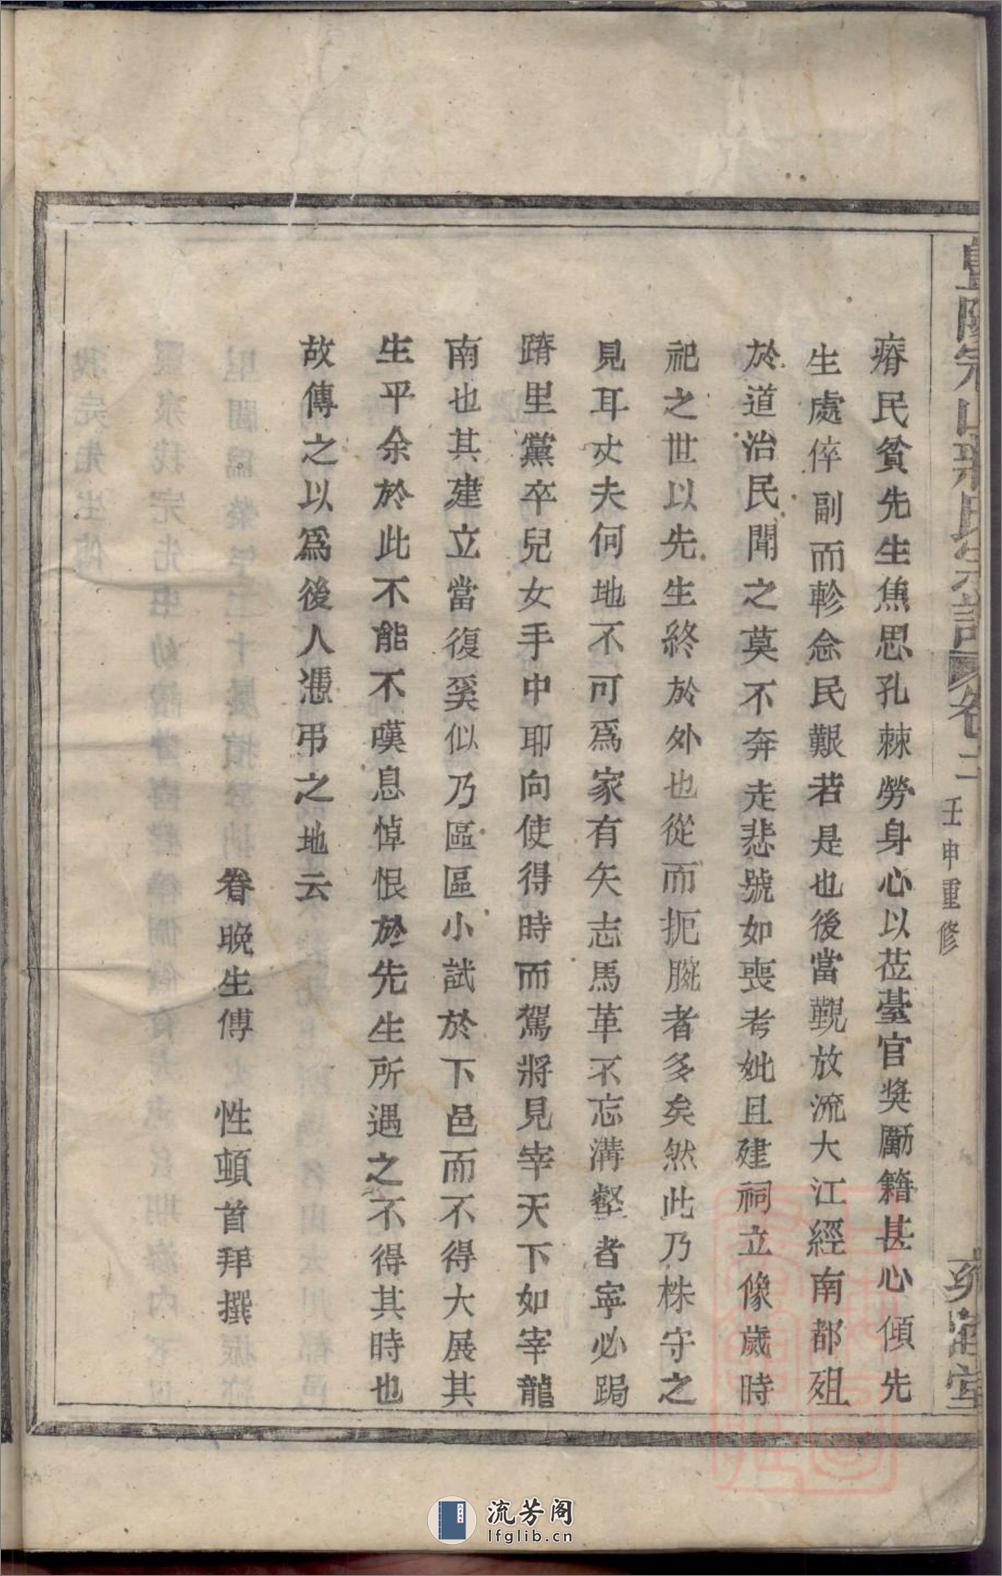 瘠民貧先生焦思孔棘勞身心以莅臺官奬勵籍甚心傾先
生處倅副而軫念民艱若是也後當觀放流大江經南都殂
於道治民聞之莫不奔走悲號如喪考妣且建祠立像歲時
祀之世以先生終於外也從而扼腕者多矣然此乃株守之
見耳丈夫何地不可爲家有矢志馬革不忘溝壑者寧必跼
蹐里黨卒兒女手中耶向使得時而駕將見宰天下如宰龍
南也其建立當復奚似乃區區小試於下邑而不得大展其
生平余於此不能不嘆息悼恨於先生所遇之不得其時也
故傳之以爲後人憑弔之地云
眷晚生傅 性頓首拜撰
宗譜 卷二 壬申重修
流芳阁
lfglib.cn